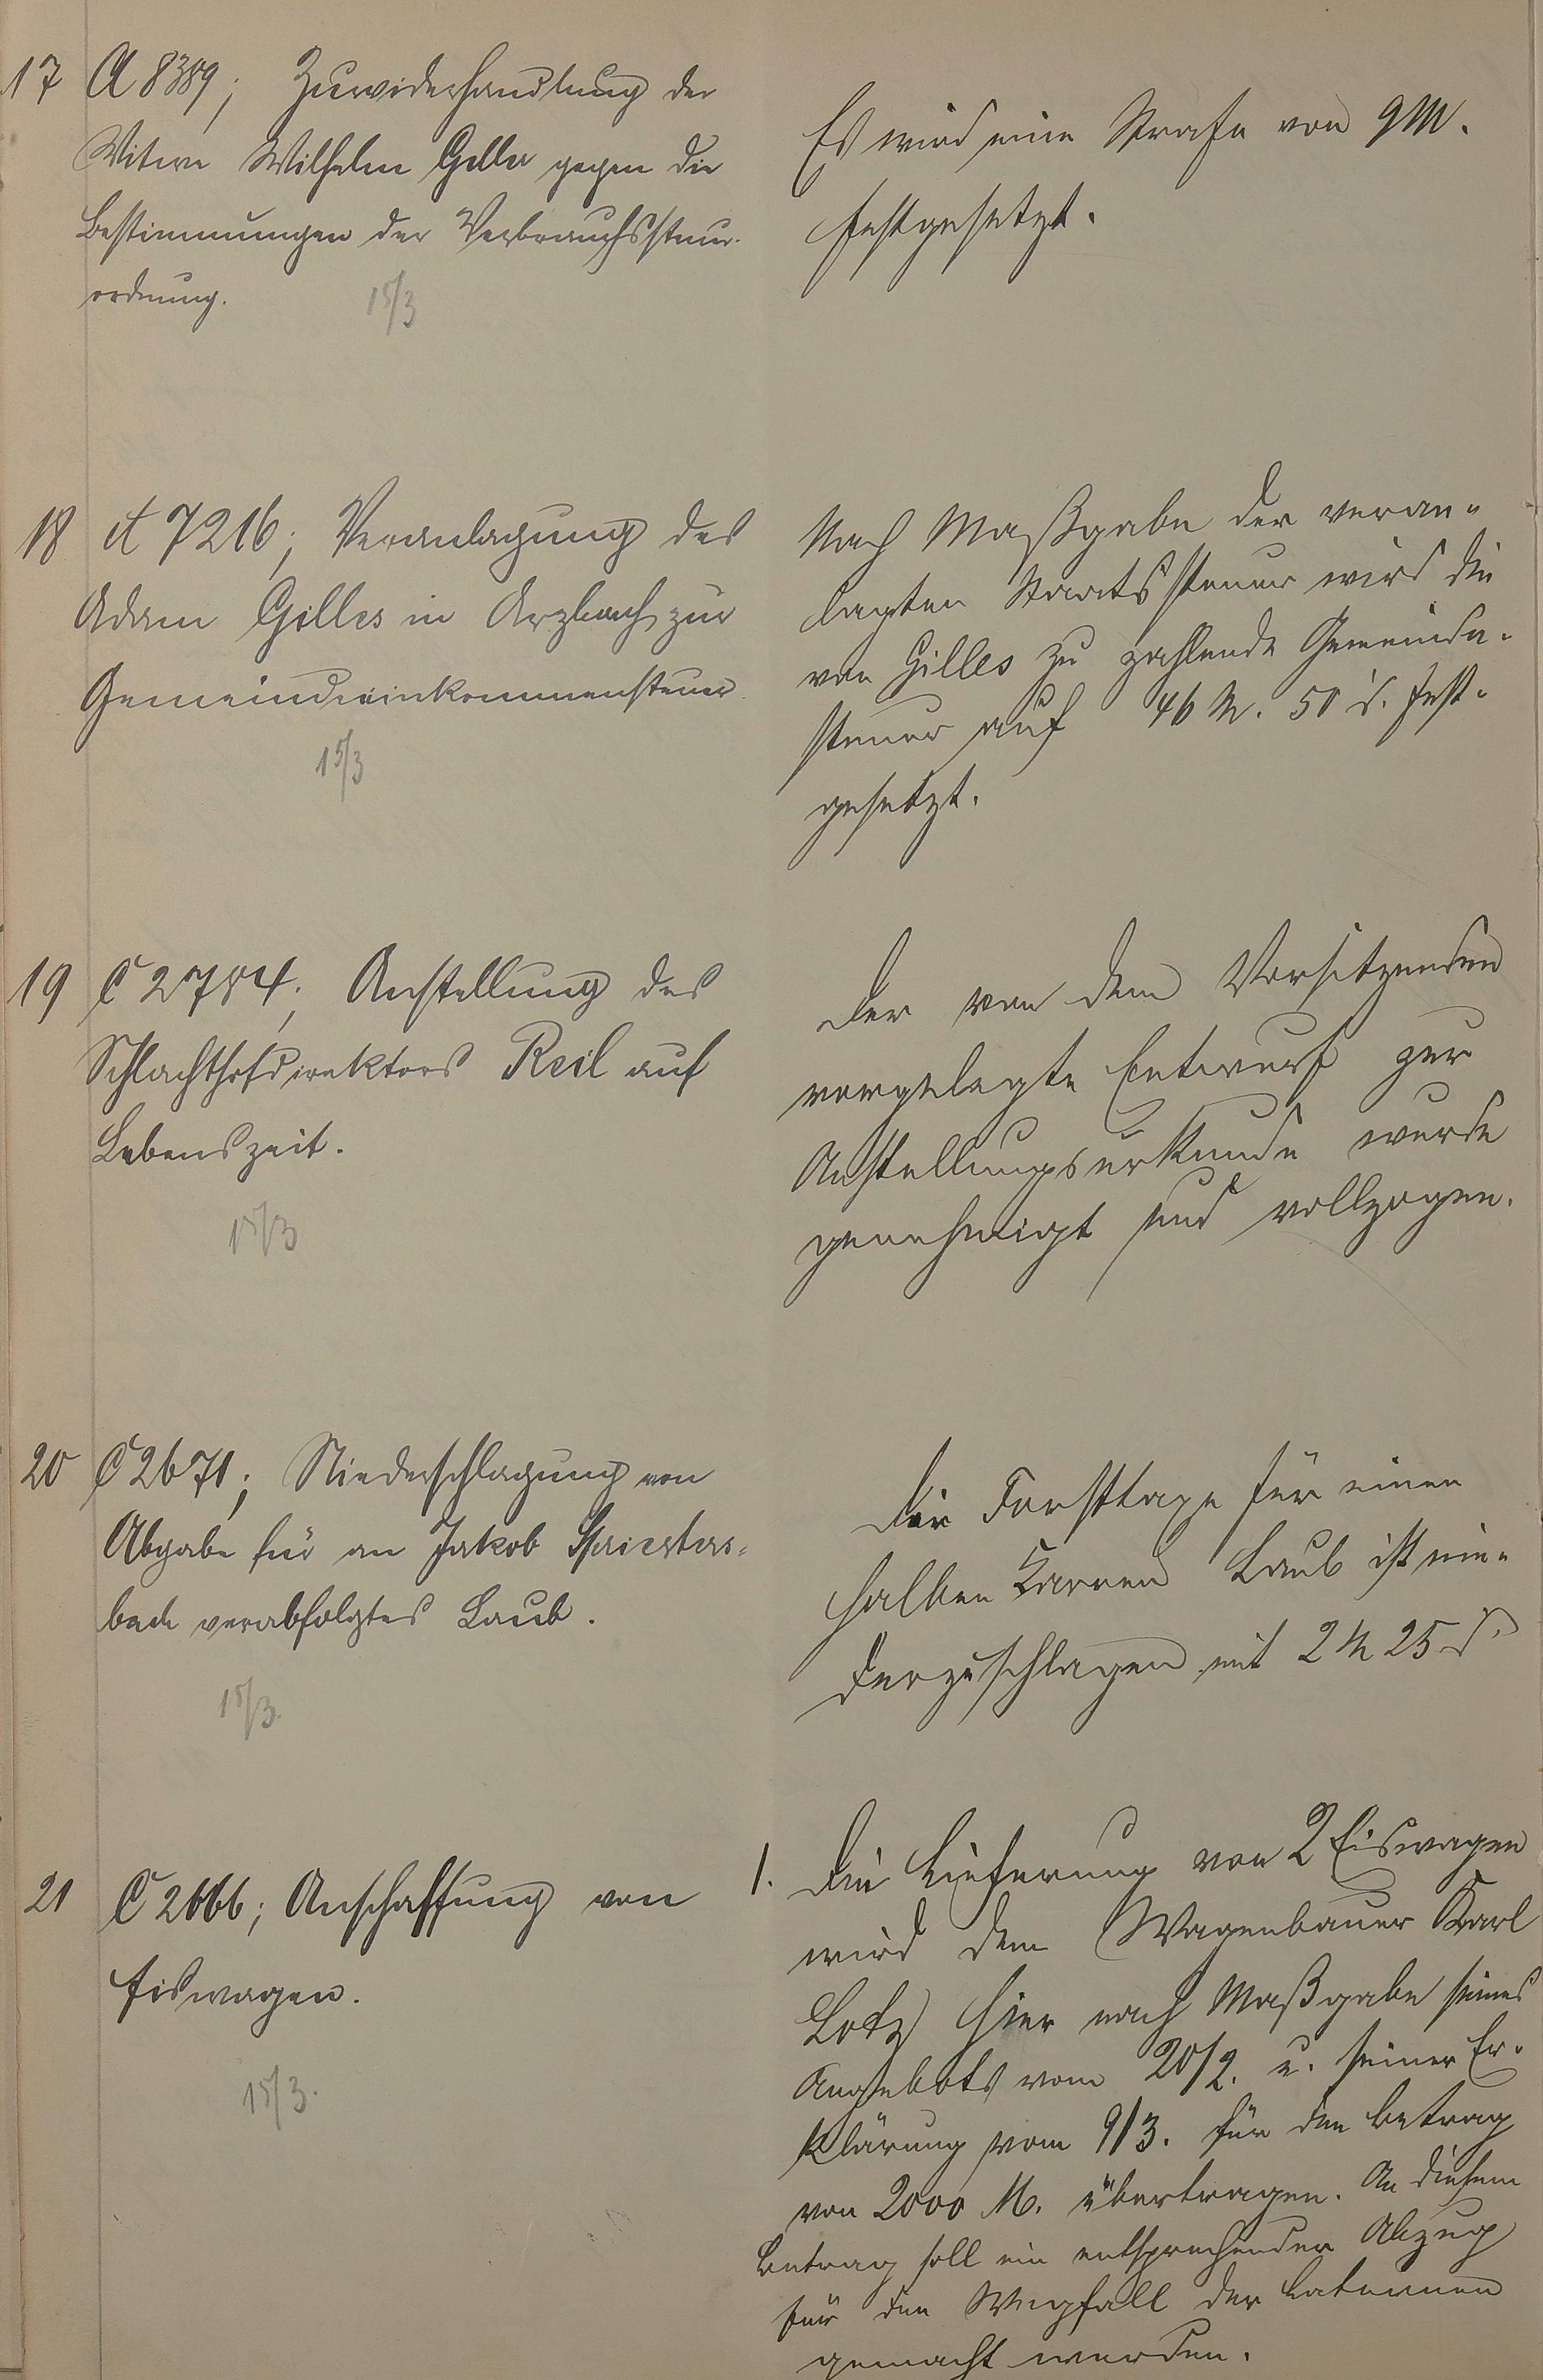 17 A 8389; Zuwiderhandlung der
Witwe Wilhelm Geller gegen die
Bestimmungen der Verbrauchssteuer-
ordnung.
15/3
Es wird eine Strafe von 9 M.
festgesetzt.
18 A 7216; Veranlagung des
Adam Gilles in Arzbach zur
Gemeindeeinkommensteuer
15/3
Nach Maßgabe der veran-
lagten Staatssteuer wird die
von Gilles zu zahlende Gemeinde-
steuer auf 46 M. 50 d. fest-
gesetzt.
19 C 2784; Anstellung des
Schlachthofdirektors Reil auf
Lebenszeit.
15/3
Der von dem Vorsitzenden
vorgelegte Entwurf zur
Anstellungsurkunde wurde
genehmigt und vollzogen.
20 C 2671; Niederschlagung von
Abgabe für an Jakob Spriesters-
bach verabfolgtes Laub.
15/3.
Die Forsttaxe für einen
halben Karren Laub ist nie-
derzuschlagen mit 2 M 25 d.
21 C 2666; Anschaffung von
Eiswagen.
15/3.
1. Die Lieferung von 2 Eiswagen
wird dem Wagenbauer Karl
Lotz hier nach Maßgabe seines
Angebots vom 20/2. u. seiner Er-
klärung vom 9/3. für den Betrag
von 2000 M. übertragen. An diesem
Betrag soll ein entsprechender Abzug
für den Wegfall der Laternen
gemacht werden.